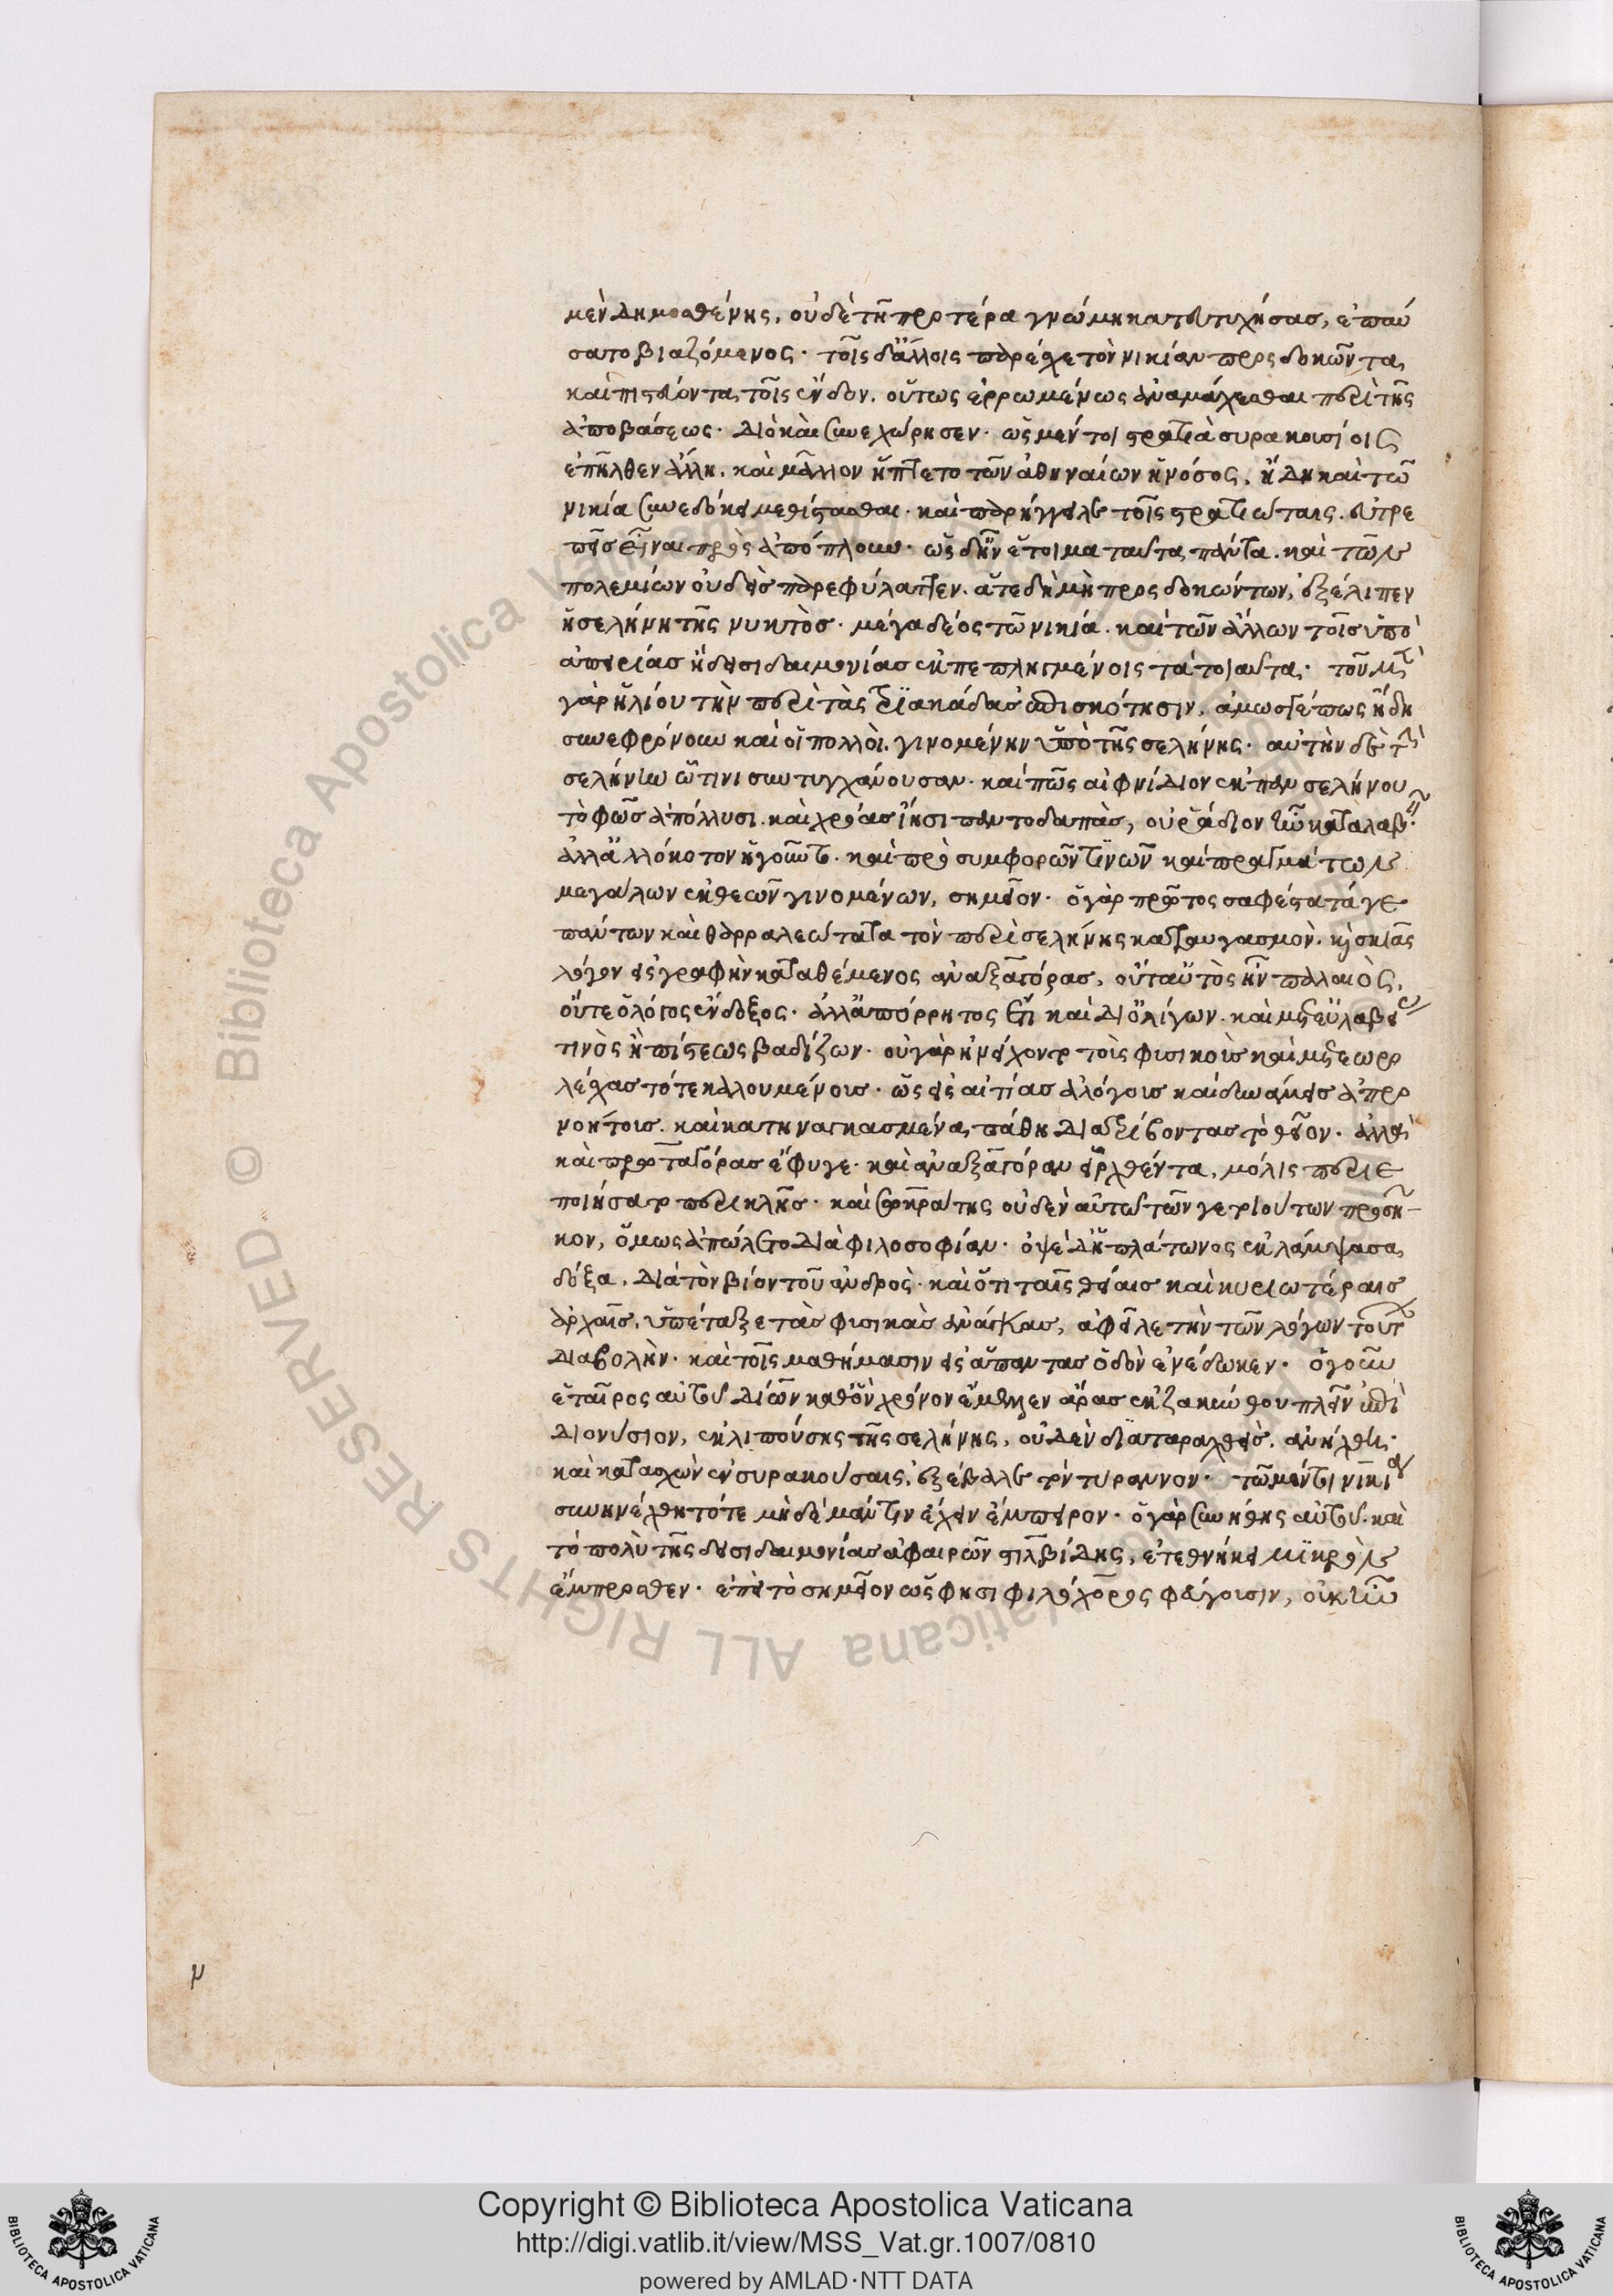 μὲν Δημοσθένης, οὐδὲ τῆ προτέρα γνώμη κατευτυχήσας, ἐπαύ
σατο βιαζόμενος· τοῖς δ' ἄλλοις παρέσχε τὸν νικίαν προσδοκῶντα
καὶ πιστεύοντα τοῖς ἔνδον. οὕτως ἐρρωμένως ἀναμάχεσθαι περὶ τῆς
ἀποβάσεως· Διὸ καὶ συνεχώρησεν· ὡς μέντοι στρατιὰ συρακουσίοις
ἐπῆλθεν ἄλλη. καὶ μᾶλλον ἥπτετο τῶν ἀθηναίων ἡ νόσος, ἤδη καὶ τῶ
νικία συνεδόκει μεθίστασθαι· καὶ παρήγγειλε τοῖς στρατιώταις. εὐτρε
πεῖς εἶναι πρὸς ἀπόπλουν· ὡς δ' ἦν ἕτοιμα ταῦτα πάντα. καὶ τῶν
πολεμίων οὐδεὶς παρεφύλαττεν. ἅτε δὴ μὴ προσδοκώντων, ἐξέλιπεν
ἡ σελήνη τῆς νυκτός· μέγα δέος τῶ νικία. καὶ τῶν ἄλλων τοῖς ὑπὸ
ἀπειρίας ἢ δεισιδαιμονίας ἐκπεπληγμένοις τὰ τοιαῦτα· τοῦ μὲν
γὰρ ἡλίου τὴν περὶ τὰς τριακάδας ἐπισκότησιν, ἁμωσγέπως ἤδη
συνεφρόνουν καὶ οἱ πολλοὶ. γινομένην ὑπὸ τῆς σελήνης· αὐτὴν δὲ τὴν
σελήνην ᾧτινι συντυγχάνουσαν· καὶ πῶς αἰφνίδιον ἐκ πανσελήνου
τὸ φῶς ἀπόλλυσι. καὶ χρόας ἵησι παντοδαπὰς, οὐ ῥάδιον ἦν καταλαβεῖν·
ἀλλ' ἀλλόκοτον ἡγοῦντο. καὶ πρὸ συμφορῶν τινῶν καὶ πραγμάτων
μεγάλων ἐκ θεῶν γινομένων, σημεῖον· ὁ γὰρ πρῶτος σαφέστατά γε
πάντων καὶ θαρραλεώτατα τὸν περὶ σελήνης καταυγασμὸν. καὶ σκιᾶς
λόγον εἰς γραφὴν καταθέμενος ἀναξαγόρας, οὔτ' αὐτὸς ἦν παλαιὸς,
οὔτε ὁ λόγος ἔνδοξος· ἀλλ' ἀπόρρητος ἔτι καὶ δι' ὀλίγων. καὶ μετ' εὐλαβείας
τινὸς ἢ πίστεως βαδίζων· οὐ γὰρ ἠνείχοντο τοὺς φυσικοὺς καὶ μετεωρο
λέσχας τότε καλουμένους· ὡς εἰς αἰτίας ἀλόγους καὶ δυνάμεις ἀπρο
νοήτους. καὶ κατηναγκασμένα πάθη διατρίβοντας τὸ θεῖον· ἀλλὰ
καὶ πρωταγόρας ἔφυγε· καὶ ἀναξαγόραν εἱρχθέντα, μόλις περιε
ποιήσατο περικλῆς· καὶ σωκράτης οὐδὲν αὐτῶ τῶν γε τοιούτων προσῆ
κον, ὅμως ἀπώλετο διὰ φιλοσοφίαν· ὀψὲ δ' ἡ πλάτωνος ἐκλάμψασα
δόξα, διὰ τὸν βίον τοῦ ἀνδρὸς· καὶ ὅτι ταῖς θείαις καὶ κυριωτέραις
ἀρχαῖς. ὑπέταξε τὰς φυσικὰς ἀνάγκας, ἀφεῖλε τὴν τῶν λόγων τούτων
διαβολὴν· καὶ τοῖς μαθήμασιν εἰς ἅπαντας ὁδὸν ἐνέδωκεν· ὁ γοῦν
ἑταῖρος αὐτοῦ Δίων καθ' ὃν χρόνον ἔμελλεν ἄρας ἐκ ζακύνθου πλεῖν ἐπὶ
Διονύσιον, ἐκλιπούσης τῆς σελήνης, οὐδὲν διαταραχθεὶς. ἀνήχθη·
καὶ κατασχὼν ἐν συρακούσαις, ἐξέβαλε τὸν τύραννον· τῶ μέντοι νικία
συνηνέχθη τότε μηδὲ μάντιν ἔχειν ἔμπειρον· ὁ γὰρ συνήθης αὐτοῦ. καὶ
τὸ πολὺ τῆς δεισιδαιμονίας ἀφαιρῶν στιλβίδης, ἐτεθνήκει μικρὸν
ἔμπροσθεν· ἐπεὶ τὸ σημεῖον ὥς φησι φιλόχορος φεύγουσιν, οὐκ ἦν
μ
Copyright © Biblioteca Apostolica Vaticana
http://digi.vatlib.it/view/MSS_Vat.gr.1007/0810
powered by AMLAD·NTT DATA
BIBLIOTECA APOSTOLICA VATICANA
BIBLIOTECA APOSTOLICA VATICANA
© Biblioteca Apostolica Vaticana ALL RIGHTS RESERVED